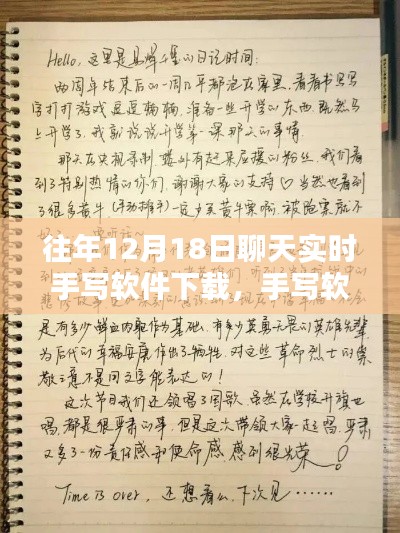 Hello, 这里是
的日记时间:
两周年结束后的一周几乎都泡在家里,看看书写写
字打打游戏逗逗猫猫,准备一些开学的东西.既然马
上开学了.我就说说开学第一课那天的事情.
那天在央视录制
外有起来应援的粉丝,我们看
到了特别热情的你们,谢谢大家的支持
当然也看到
了很多黄牛
一定
买黄牛票啊.被骗票就不
往年12月18日聊天实时
手写软件下载,手写软
是有多少鲜血
作为基础,有多少英勇无畏的英雄先辈
为后代的幸福安康作出了牺牲.对这些革命烈士的崇
敬之意不是用文字能表达的!
这次节目我们还领唱了国歌.虽然在学校升旗也
唱.都是很严肃的事.但是这次带领大家一起唱.严肃
又多了一份责任感和使命感.感到很光荣!
Time is over, 还想看么.下次见……